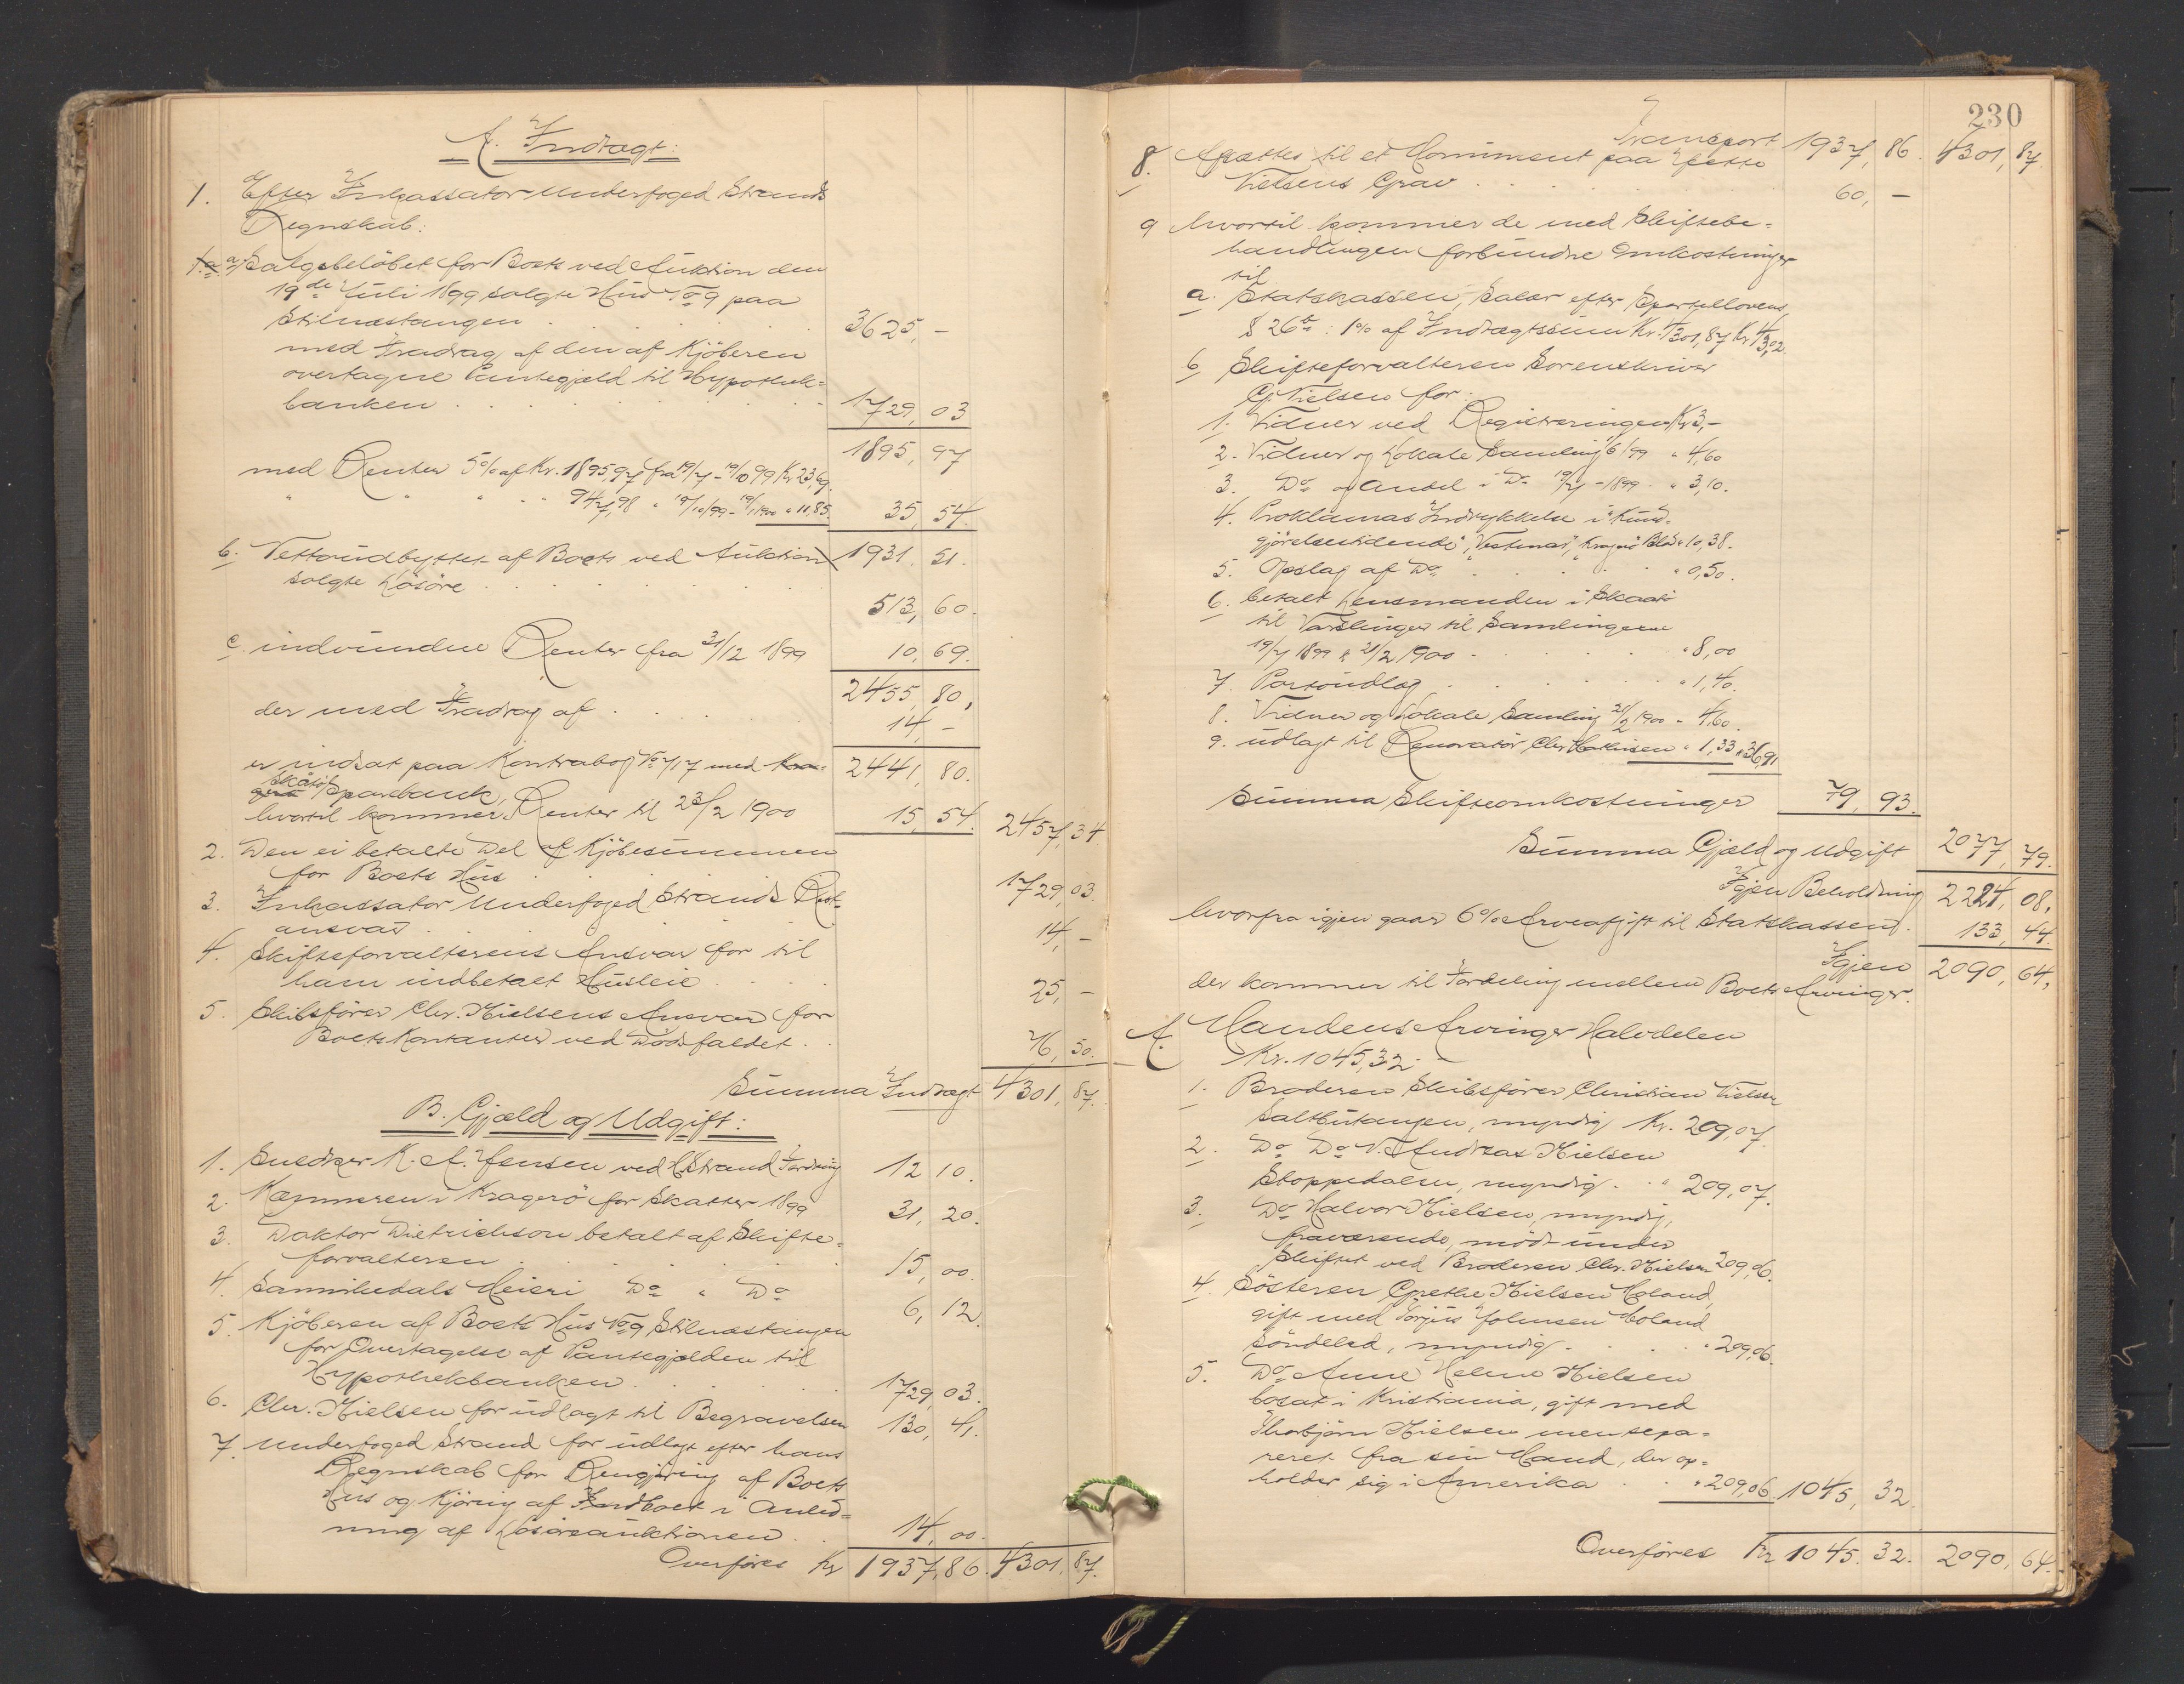 A. Indtægt:
1. Efter Inkassator Underfoged Strands
Regnskab:
a. Salgsbeløbet for Boets ved Auktion den
19de Juli 1899 solgte Hus No 9 paa
Stilnæstangen . . . 3625,-
med Fradrag af den af Kjøberen
overtagne Pantegjæld til Hypothek-
banken . . . 1729,03
1895,97
med Renter 5% af Kr. 1895,97 fra 19/7 - 19/10 99 Kr 23,69.
" " " - - 947,98 " 19/10/99 - 19/1 1900 " 11,85. 35,54.
b. Nettoudbyttet af Boets ved Auktion 1931.51.
solgte Løsøre . . . 513,60.
c. indvundne Renter fra 31/12 1899 10,69.
2455,80,
der med Fradrag af . . . 14,-
er indsat paa Kontrabog No 717 med 2441,80.
Skåtø Sparebank,
hvortil kommer Renter til 23/2 1900 15,54. 2457,34.
2. Den ei betalte Del af Kjøbesummen
for Boets Hus . . . 1729,03.
3. Inkassator Underfoged Strands Rest-
ansvar . . . 14,-
4. Skifteforvalterens Ansvar for til
ham indbetalt Husleie . . . 25,-
5. Skibsfører Chr. Nielsens Ansvar for
Boets Kontanter ved Dødsfaldet . . 76,50.
Summa Indtægt 4301,87.
B. Gjæld og Udgift:
1. Snedker K. A. Jensen ved H Strand Fordring 12 10.
2. Kæmneren i Kragerø for Skatter 1899 31,20.
3. Doktor Dietrichson betalt af Skifte-
forvalteren . . . 15,00.
4. Sannikedals Meieri Do " Do 6,12.
5. Kjøberen af Boets Hus No 9 Stilnæstangen
for Overtagelse af Pantegjælden til
Hypothekbanken . . . 1729,03.
6. Chr. Nielsen for udlagt til Begravelsen 130,41.
7. Underfoged Strand for udlagt efter hans
Regnskab for Rengjøring af Boets
Hus og Kjøring af Indboet i Anled-
ning af Løsøreauktionen . . 14,00.
Overføres Kr 1937,86. 4301,87.
230
Transport 1937,86. 4301,87.
8. Afsættes til et Monument paa Jesse
Nielsens Grav . . . 60,-
9 hvortil kommer de med Skiftebe-
handlingen forbundne Omkostninger
til
a. Statskassen, Salær efter Sportellovens
§ 26 : 1% af Indtægtssum Kr. 4301,87 Kr 43,02
b Skifteforvalteren Sorenskriver
Cj. Nielsen for:
1. Vidner ved Registreringen Kr 3,-
2. Vidner og Lokale Samling 1/6/99 " 4,60
3. Do og Andel i Do 19/7-1899 " 3,10.
4. Proklamas Indrykkelse i "Kund-
gjørelsestidende", "Vestmar", Kragerø Blad " 10,38.
5. Opslag af Do . . . " 0,50.
6. betalt Lensmanden i Skaatø
til Varslinger til Samlingerne
19/7 1899 & 21/2 1900 . . . " 8,00
7. Portoudlæg . . . " 1,40.
8. Vidner og Lokale Samling 21/2 1900 " 4,60.
9. udlagt til Renovatør Chr Mathisen " 1,33 " 36,91
Summa Skifteomkostninger 79,93.
Summa Gjæld og Udgift 2077,79.
Igjen Beholdning 2224,08,
hvorfra igjen gaar 6% Arveafgift til Statskassen . 133,44.
Igjen 2090,64,
der kommer til Fordeling mellem Boets Arvinger.
A. Mandens Arvinger Halvdelen
Kr. 1045,32.-
1. Broderen Skibsfører Christian Nielsen
Saltbutangen, myndig Kr. 209,07.
2. Do Do N. Andreas Nielsen
Stoppedalen, myndig . . " 209,07.
3. Do Halvor Nielsen, myndig,
fraværende, mødt under
Skiftet ved Broderen Chr. Nielsen 209,06.
4. Søsteren Grethe Nielsen Moland,
gift med Torjus Johnsen Moland
Søndeled, myndig . . . " 209,06.
5. Do Anne Helene Nielsen
bosat i Kristiania, gift med
Thorbjørn Nielsen men sepa-
reret fra sin Mand, der op-
holder sig i Amerika . . " 209,06. 1045,32.
Overføres Kr 1045.32. 2090,64.